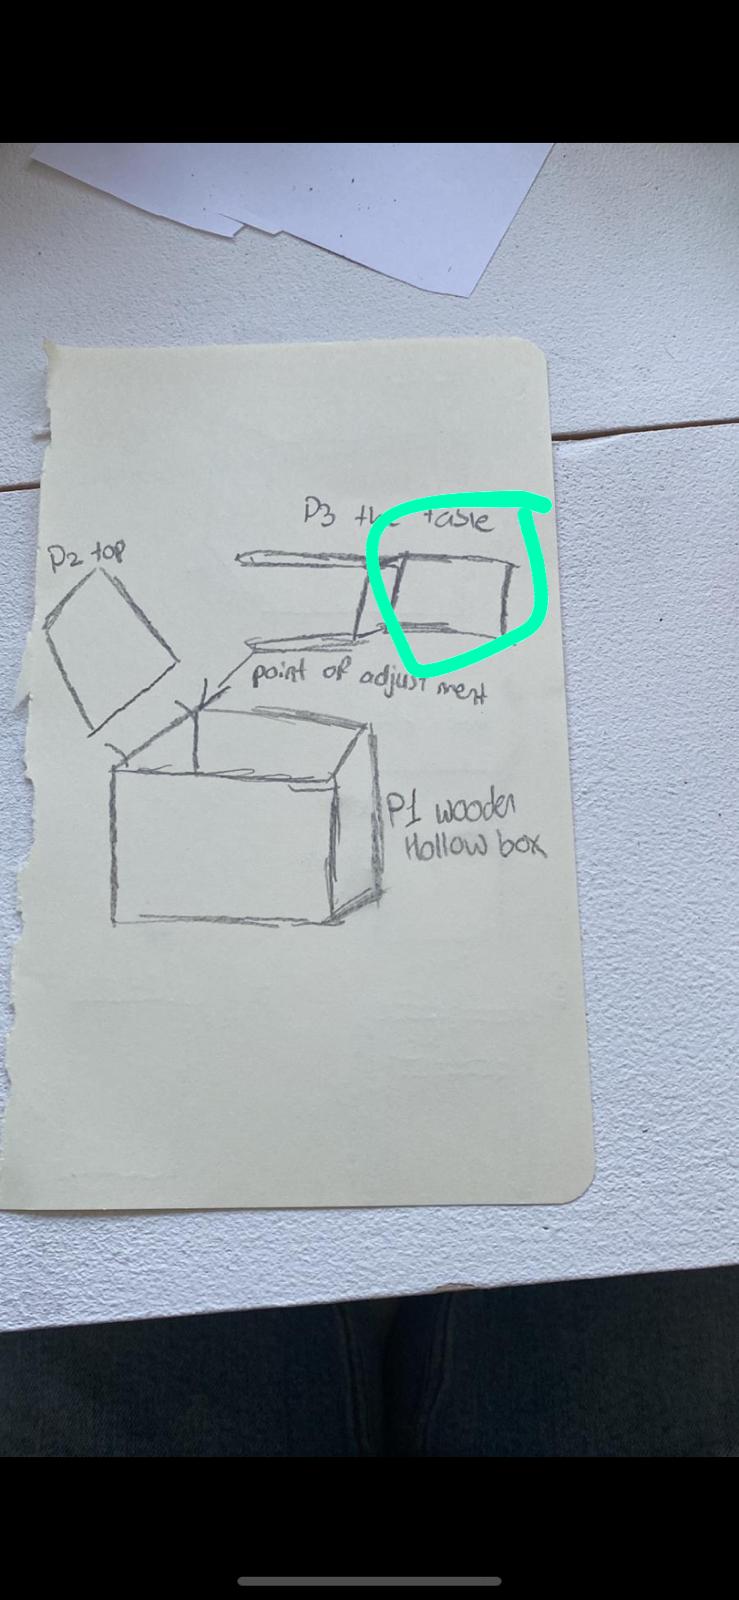 P3 the table
P2 top
point of adjustment
P1 wooden
Hollow box